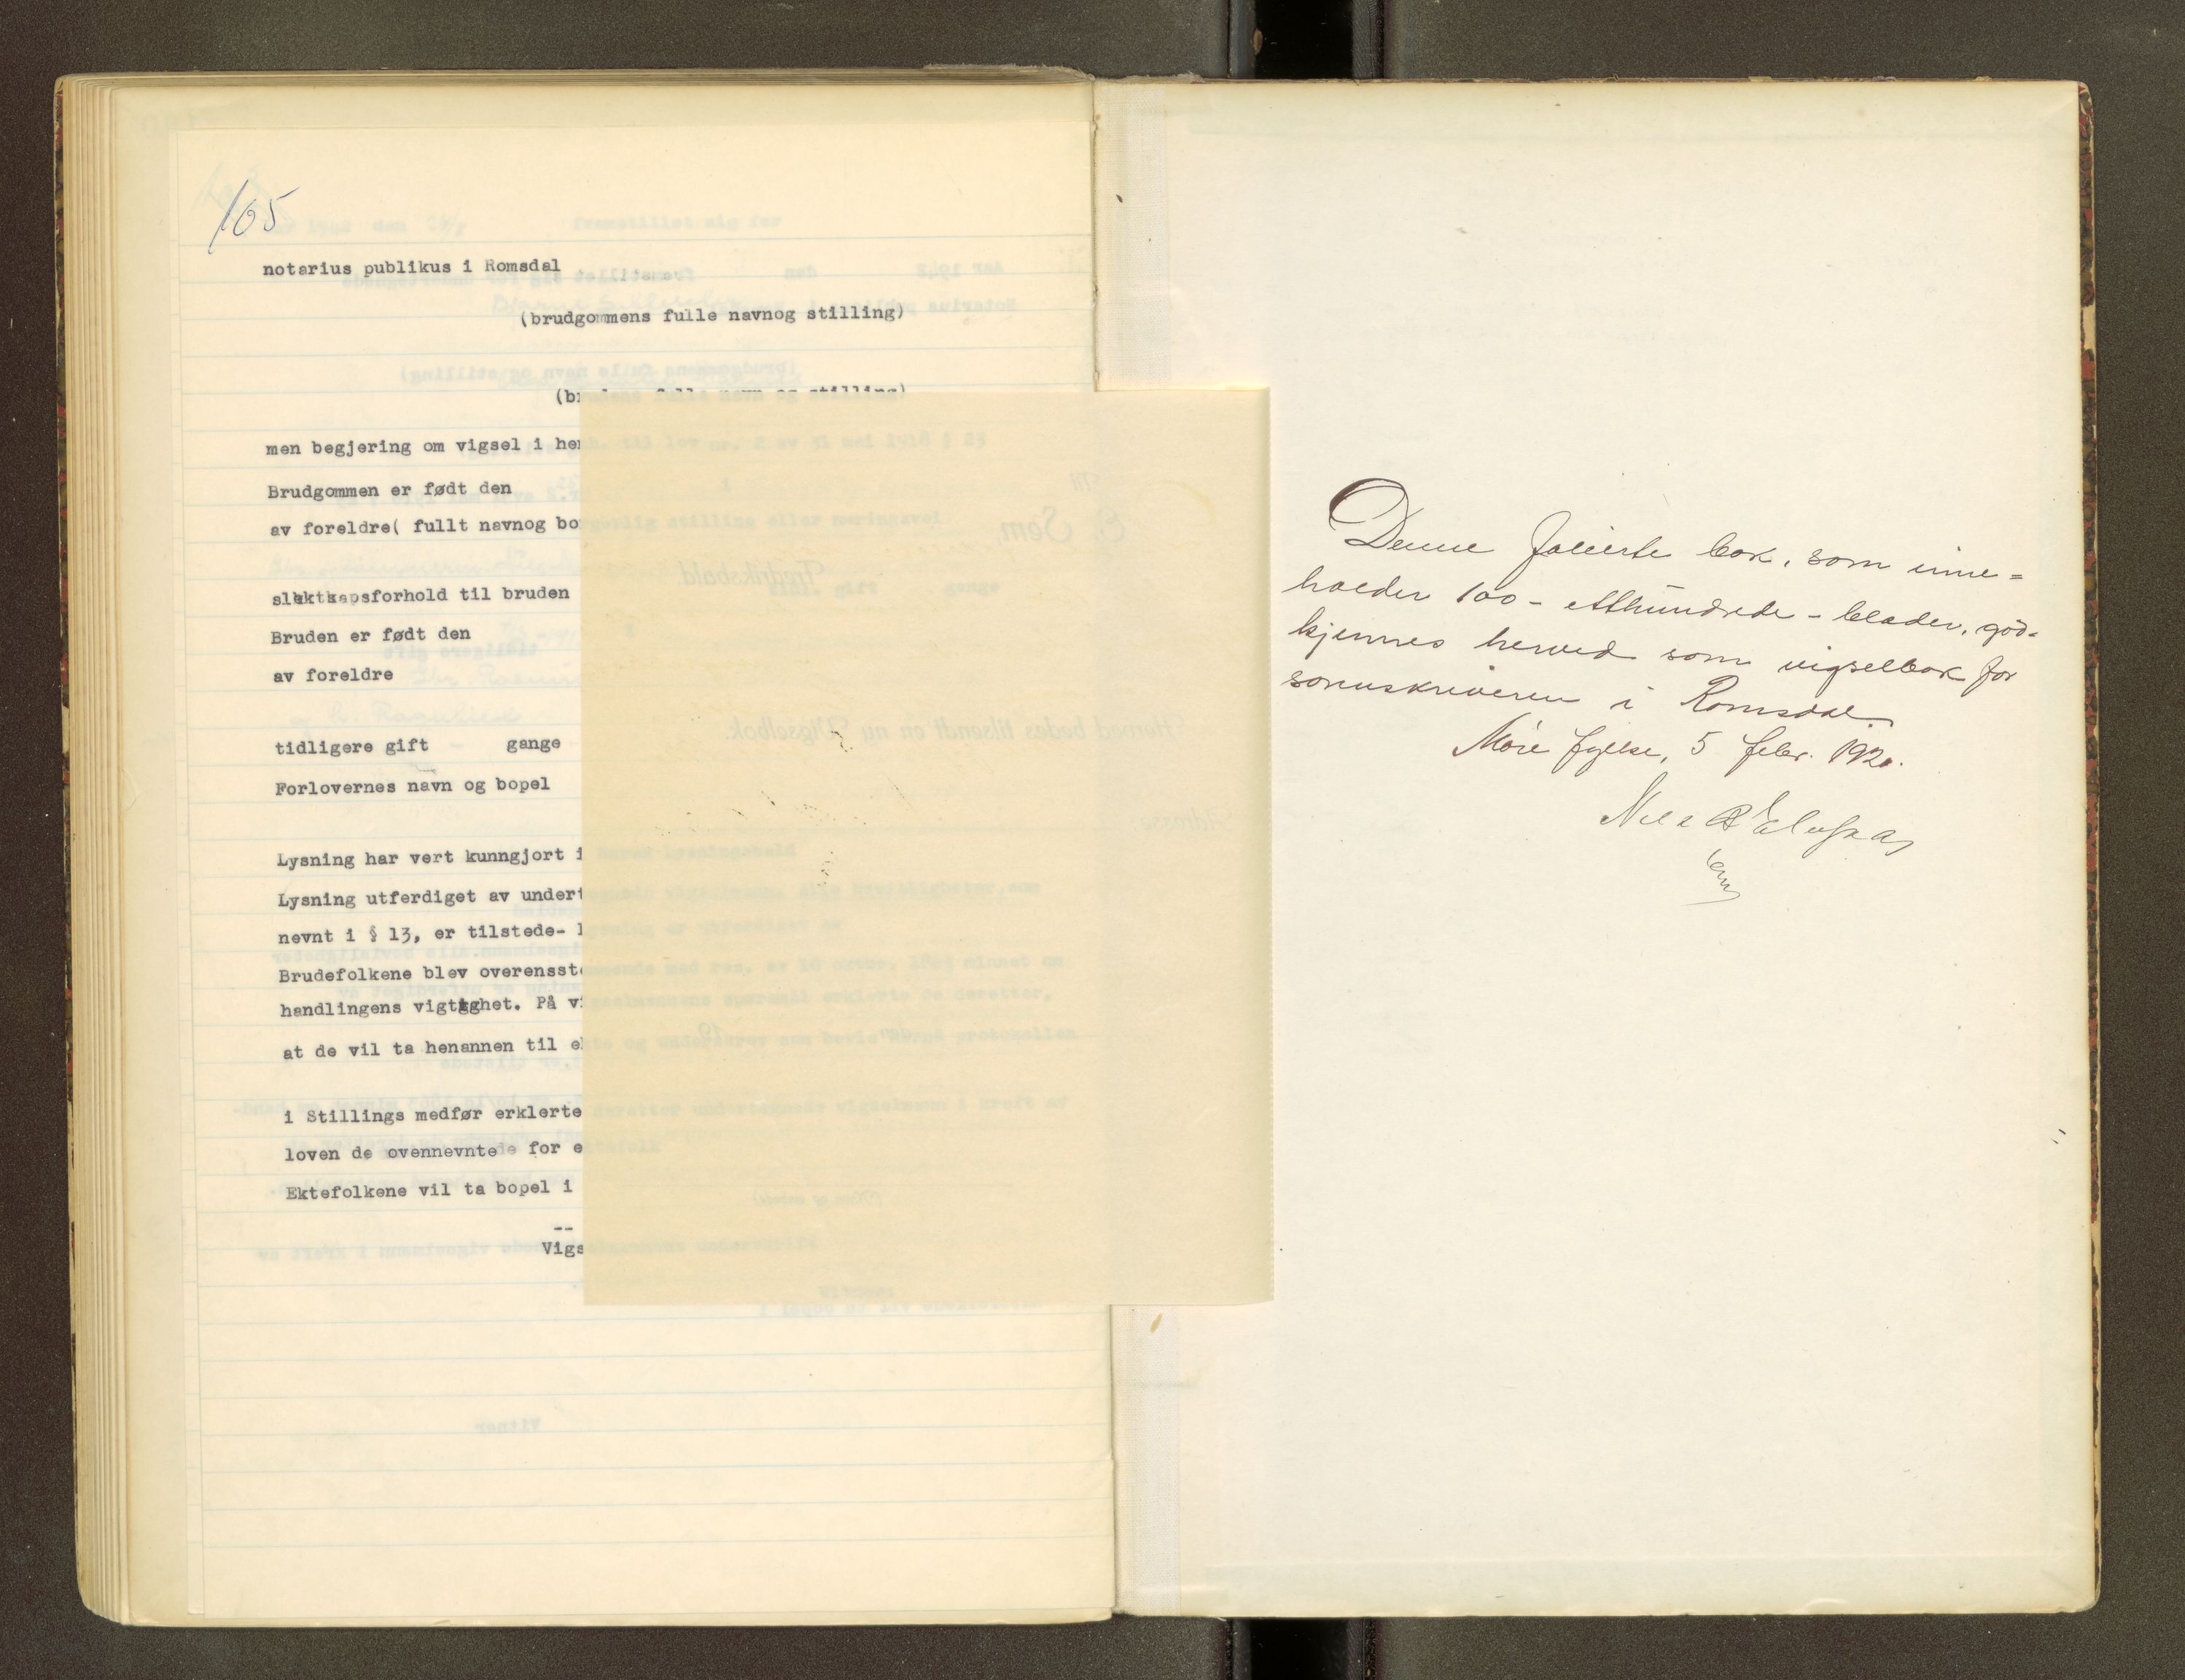 105
notarius publikus i Romsdal
(brudgommens fulle navnog stilling)
men begjering om vigsel i hen
Brudgommen er født den
av foreldre( fullt navnog bo
slektskapsforhold til bruden
Bruden er født den
av foreldre
tidligere gift gange
Forlovernes navn og bopel
Lysning har vert kunngjort i
Lysning utferdiget av undert
nevnt i § 13, er tilstede- l
Brudefolkene blev overensste
handlingens vigtighet. På vi
at de vil ta henannen til ek
i Stillings medfør erklerte
loven de ovennevntede for e
Ektefolkene vil ta bopel i
--
Vigs
Til
E. Sem,
Fredrikshald.
Herved bedes tilsendt en ny Vigselbok.
Adresse:
19
(Navn og embede)
Denne folierte bok, som inne=
holder 100 - etthundrede - blader, god=
kjennes herved som vigselbok for
sorenskriveren i Romsdal.
Møre fylke, 5 febr. 1920.